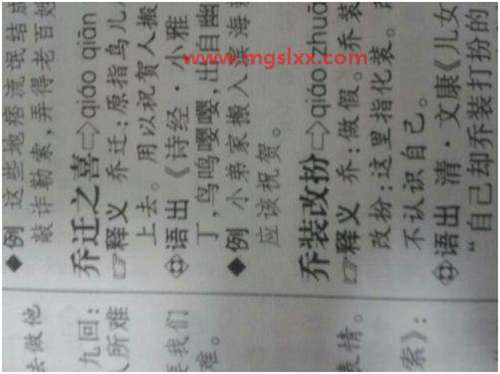 www.mgslxx.com
例 这些地痞流氓结成
敲诈勒索,弄得老百姓
乔迁之喜⇨qiáo qiān
释义 乔迁:原指鸟儿
上去。用以祝贺人搬
语出《诗经·小雅
丁,鸟鸣嘤嘤,出自幽
例 小弟家搬入滨海
应该祝贺。
乔装改扮⇨qiáo zhuā
释义 乔:做假。乔装
改扮:这里指化装。
不认识自己。
语出 清·文康《儿女
“自己却乔装打扮的
去做他
九回:
人所难
我们
难。
表情。
索》: